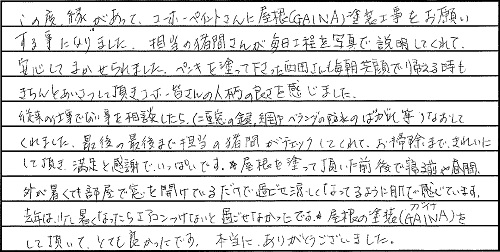 この度、縁があって、ユーホーペイントさんに屋根(GAINA)塗装工事をお願い
する事になりました。担当の猪間さんが毎日工程を写真で説明してくれて、
安心してまかせられました。ペンキを塗って下さった西岡さんも毎朝笑顔で帰える時も
きちんとあいさつして頂きユーホー皆さんの人柄の良さを感じました。
従来の工事でない事を相談したら、(玄窓の鍵、網戸、ベランダの防水のはがれ等)なおして
くれました。最後の最後まで担当の猪間がチェックしてくれて、お掃除まできれいに
して頂き、満足と感謝で、いっぱいです。屋根を塗って頂いた前後で寝る前や昼間、
外が暑くても部屋で窓を開けているだけで過ごせ涼しくなってるように肌で感じています。
去年は少し暑くなったらエアコンつけないと過ごせなかったです。屋根の塗装(GAINA)を
ガイナ
して頂いて、とても良かったです。本当に、ありがとうございました。